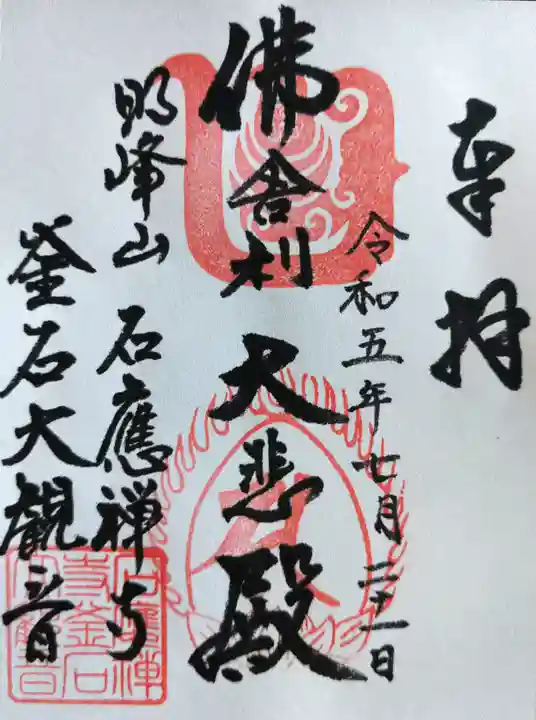 奉拝
令和五年七月二十一日
佛舎利 大悲殿
明峰山 石應禅寺
釜石大観音
石應禅寺釜石大観音